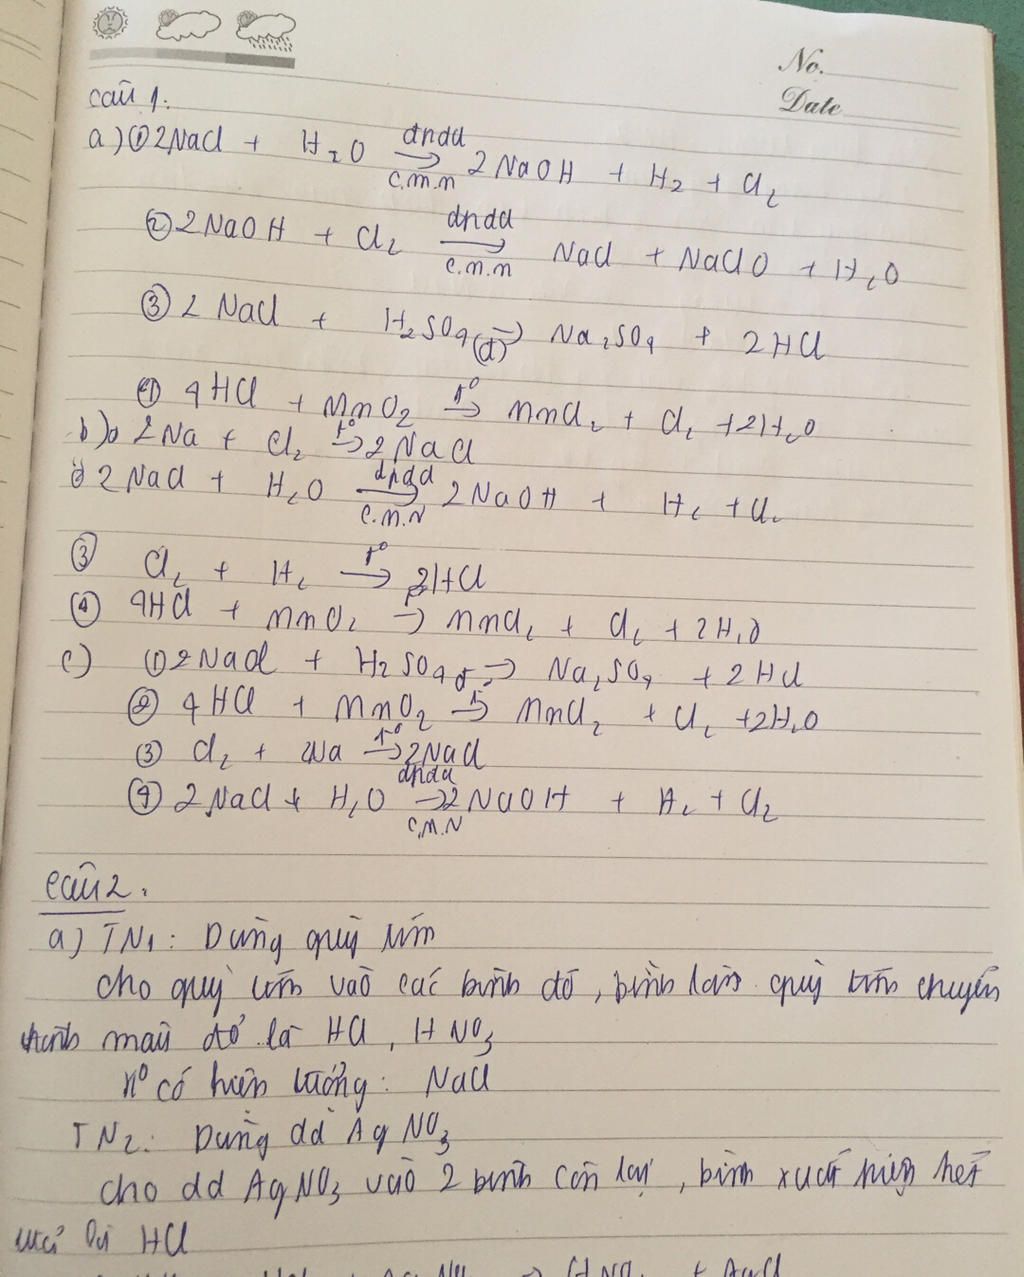 No.
Date
câu 1.
a) ① 2NaCl + H₂O →(đpdd, c.m.n) 2NaOH + H₂ + Cl₂
② 2NaOH + Cl₂ →(đpdd, c.m.n) NaCl + NaClO + H₂O
③ 2NaCl + H₂SO₄(đ) → Na₂SO₄ + 2HCl
④ 4HCl + MnO₂ →(t°) MnCl₂ + Cl₂ + 2H₂O
b) ① 2Na + Cl₂ →(t°) 2NaCl
② 2NaCl + H₂O →(đpdd, c.m.N) 2NaOH + H₂ + Cl₂
③ Cl₂ + H₂ →(t°) 2HCl
④ 4HCl + MnO₂ → MnCl₂ + Cl₂ + 2H₂O
c) ① 2NaCl + H₂SO₄ đ → Na₂SO₄ + 2HCl
② 4HCl + MnO₂ →(t°) MnCl₂ + Cl₂ + 2H₂O
③ Cl₂ + 2Na →(t°) 2NaCl
④ 2NaCl + H₂O →(đpdd, C.M.N) 2NaOH + H₂ + Cl₂
câu 2.
a) TN1: Dùng quỳ tím
cho quỳ tím vào các bình đó, bình làm quỳ tím chuyển
thành màu đỏ là HCl, HNO₃
k° có hiện tượng: NaCl
TN2: Dùng dd AgNO₃
cho dd AgNO₃ vào 2 bình còn lại, bình xuất hiện kết
tủa là HCl